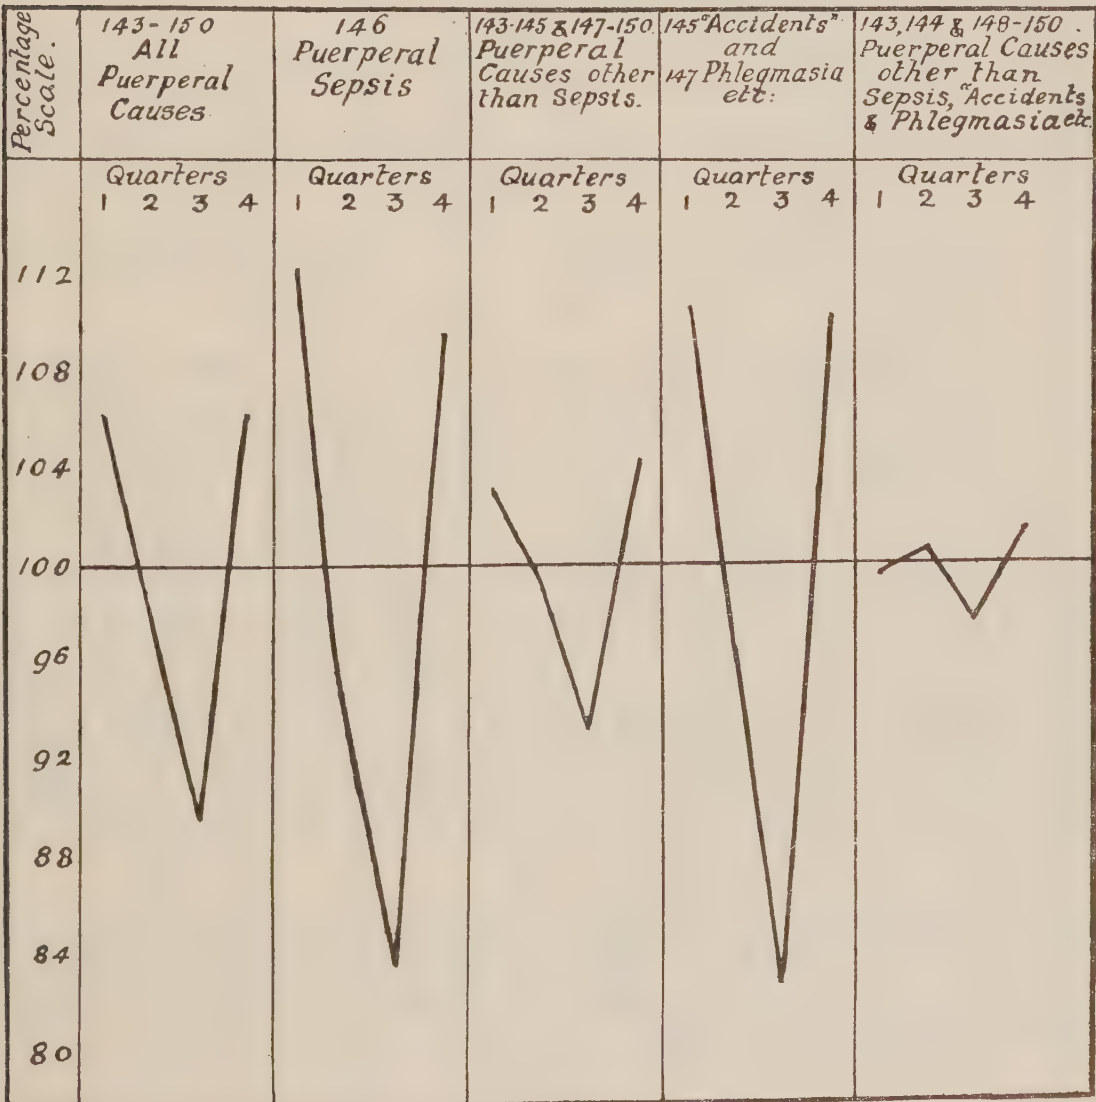 Percentage
Scale.
143-150
All
Puerperal
Causes.
146
Puerperal
Sepsis
143-145 & 147-150.
Puerperal
Causes other
than Sepsis.
145 "Accidents"
and
147 Phlegmasia
etc:
143, 144 & 148-150.
Puerperal Causes
other than
Sepsis, "Accidents
& Phlegmasia etc.
Quarters
1 2 3 4
Quarters
1 2 3 4
Quarters
1 2 3 4
Quarters
1 2 3 4
Quarters
1 2 3 4
112
108
104
100
96
92
88
84
80